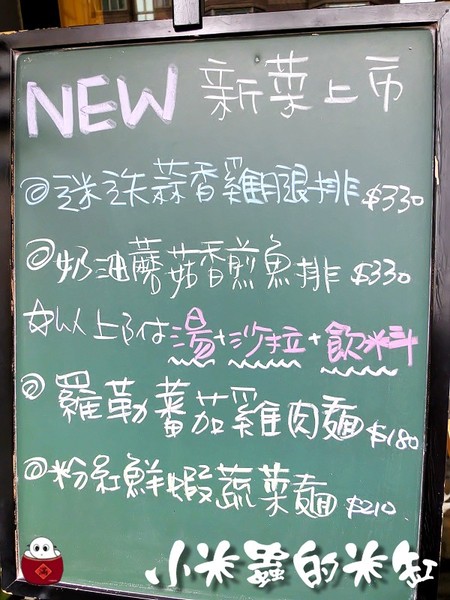 NEW 新菜上市
◎迷迭蒜香雞腿排 $330
◎奶油蘑菇香煎魚排 $330
☆以上附湯+沙拉+飲料
◎羅勒蕃茄雞肉麵 $180
◎粉紅鮮蝦蔬菜麵 $210
小米蟲的米缸